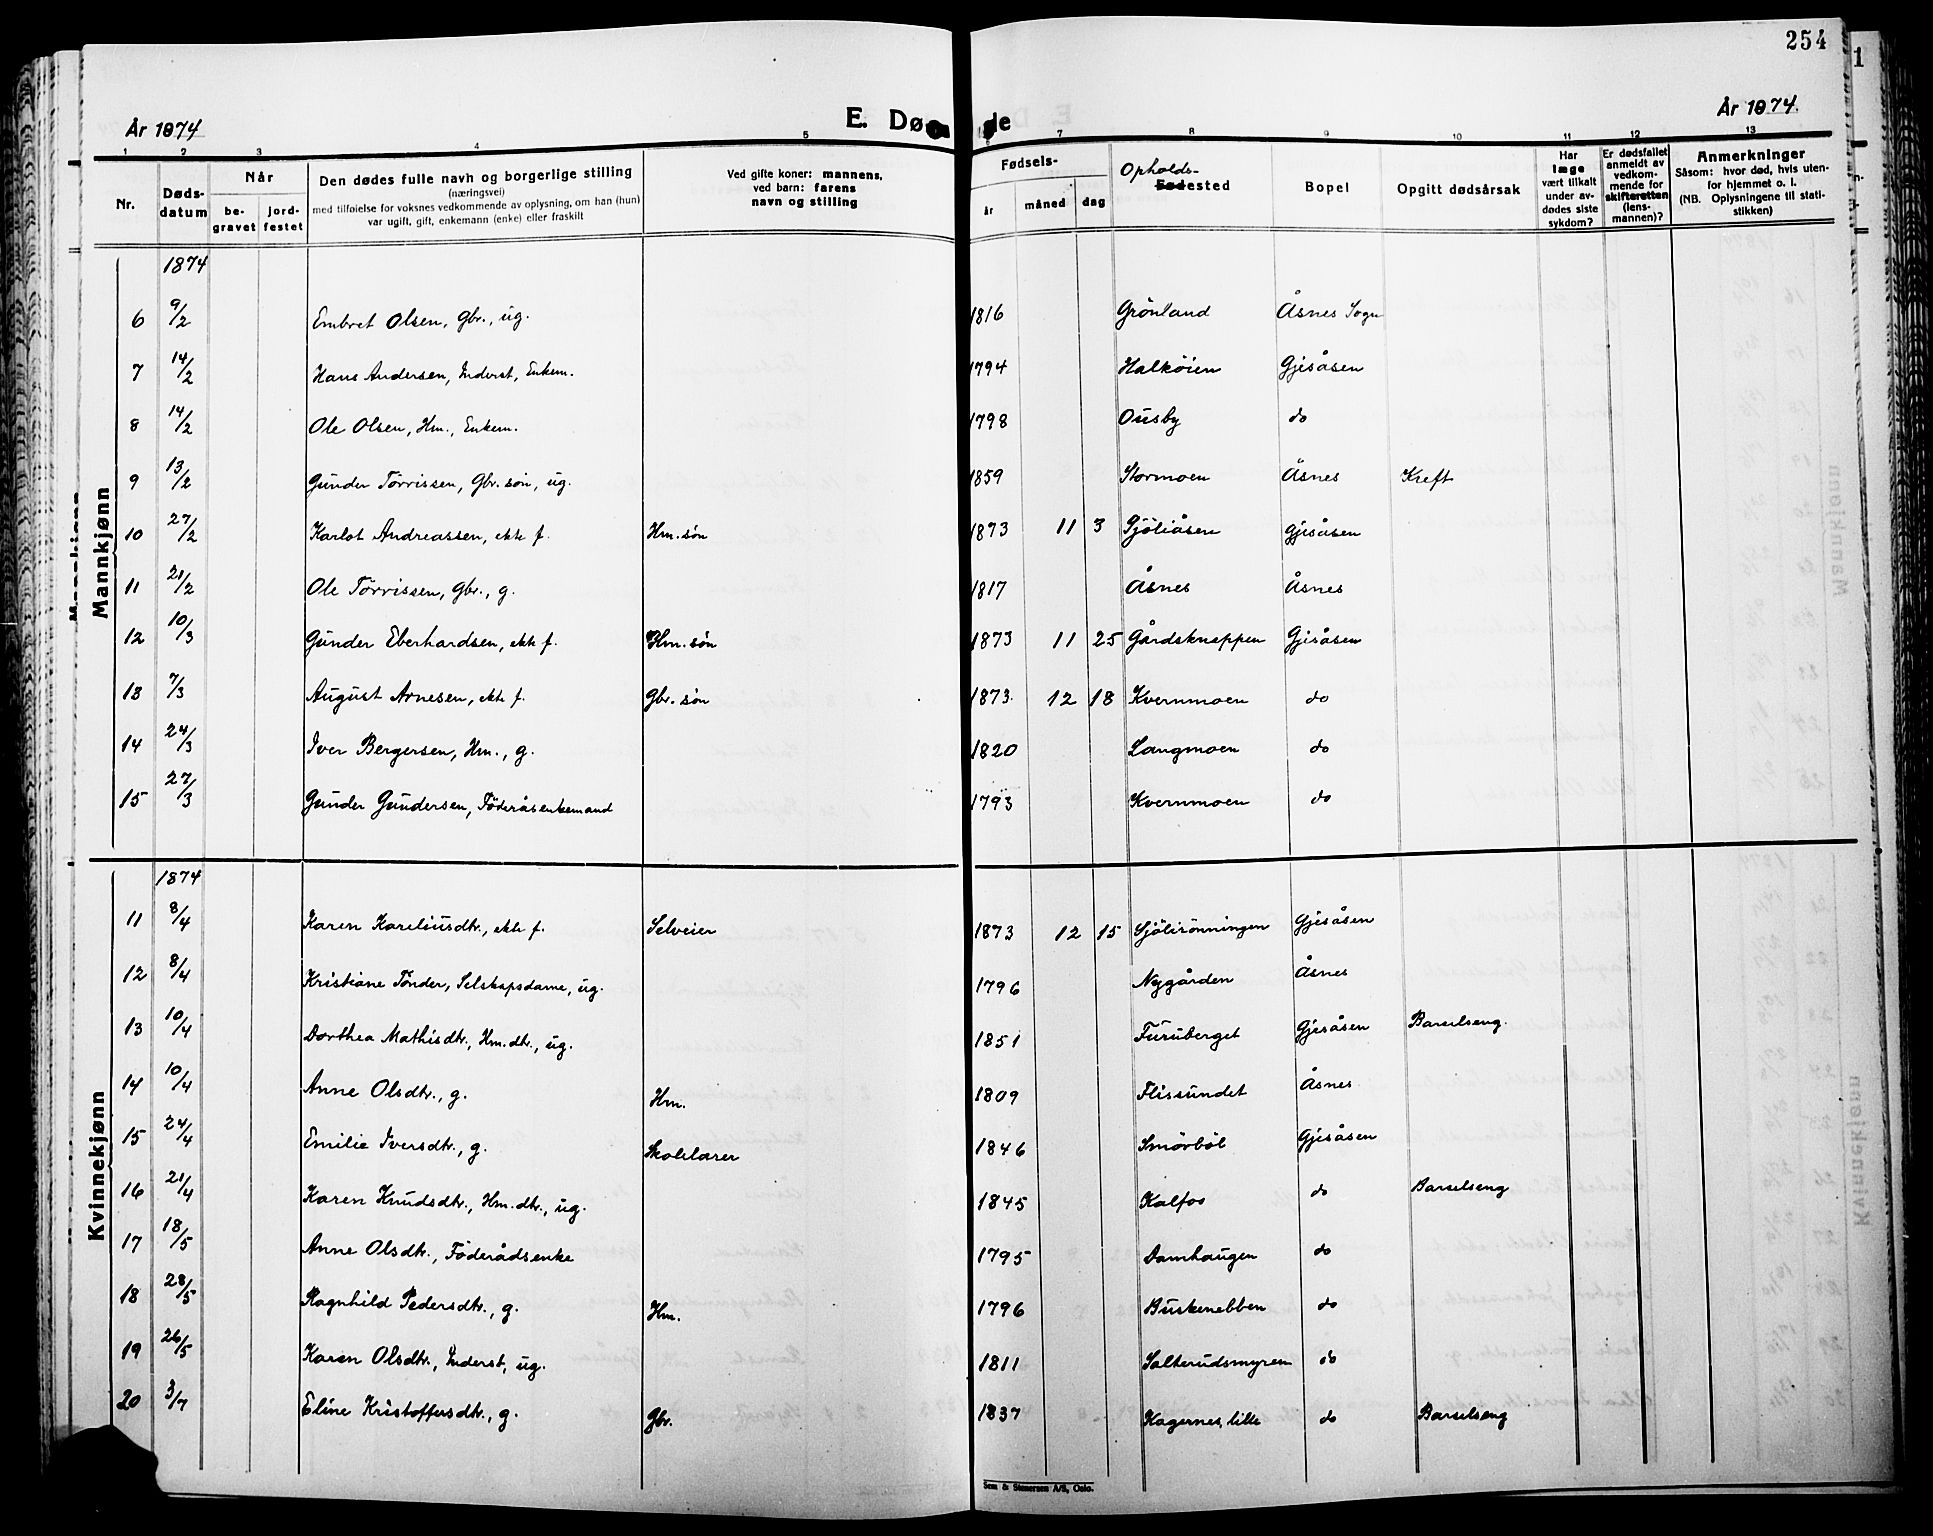 254
1
År 1874
E. Døde
År 1874.
1 2 3 4 5 6 7 8 9 10 11 12 13
Nr.
Døds-
datum
Når
be-
gravet
jord-
festet
Den dødes fulle navn og borgerlige stilling
(næringsvei)
med tilføielse for voksnes vedkommende av oplysning, om han (hun)
var ugift, gift, enkemann (enke) eller fraskilt
Ved gifte koner: mannens,
ved barn: farens
navn og stilling
Fødsels-
år
måned
dag
Opholds-
Fødested
Bopel
Opgitt dødsårsak
Har
læge
vært tilkalt
under av-
dødes siste
sykdom?
Er dødsfallet
anmeldt av
vedkom-
mende for
skifteretten
(lens-
mannen)?
Anmerkninger
Såsom: hvor død, hvis uten-
for hjemmet o. l.
(NB. Oplysningene til stati-
stikken)
Mannkjønn
1874
6 9/2 Embret Olsen, Gbr., ug. 1816 Grönland Åsnes Sogn
7 14/2 Hans Andersen, Inderst, Enkem. 1794 Halköien Gjesåsen
8 14/2 Ole Olsen, Hm., Enkem. 1798 Ousby do
9 13/2 Gunder Törrissen, Gbr. sön, ug. 1859 Stormoen Åsnes Kreft
10 27/2 Karlot Andreassen, ekte f. Hm. sön 1873 11 3 Sjöliåsen Gjesåsen
11 21/2 Ole Törrissen, Gbr., g. 1817 Åsnes Åsnes
12 10/3 Gunder Eberhardsen, ekte f. Hm. sön 1873 11 25 Gårdsknappen Gjesåsen
13 7/3 August Arnesen, ekte f. Gbr. sön 1873. 12 18 Kvernmoen do
14 24/3 Iver Bergersen, Hm., g. 1820 Langmoen do
15 27/3 Gunder Gundersen, Föderåsenkemand 1793 Kvernmoen do
Kvinnekjønn
1874
11 8/4 Karen Kareliusdtr., ekte f. Selveier 1873 12 15 Sjölirönningen Gjesåsen
12 8/4 Kristiane Tönder, Selskapsdame, ug. 1796 Nygården Åsnes
13 10/4 Dorthea Mathisdtr., Hm. dtr., ug. 1851 Furuberget Gjesåsen Barselseng.
14 10/4 Anne Olsdtr., g. Hm. 1809 Flissundet Åsnes
15 24/4 Emilie Iversdtr., g. Skolelærer 1846 Smörböl Gjesåsen
16 21/4 Karen Knudsdtr., Hm. dtr., ug. 1845 Kalfos do Barselseng
17 18/5 Anne Olsdtr., Föderådsenke 1795 Damhaugen do
18 28/5 Ragnhild Pedersdtr., g. Hm. 1796 Buskenebben do
19 26/5 Karen Olsdtr., Inderst, ug. 1811 Salterudsmyren do
20 3/7 Eline Kristoffersdtr., g. Gbr. 1837 Kagernes, lille do Barselseng
Sem & Stenersen A/S, Oslo.